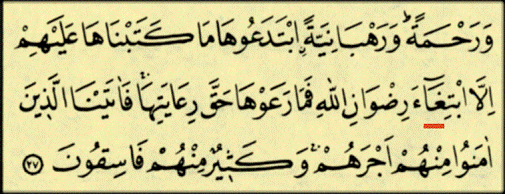 وَرَحْمَةًۜ وَرَهْبَانِيَّةًۨ ابْتَدَعُوهَا مَا كَتَبْنَاهَا عَلَيْهِمْ
اِلَّا ابْتِغَٓاءَ رِضْوَانِ اللّٰهِ فَمَا رَعَوْهَا حَقَّ رِعَايَتِهَاۚ فَاٰتَيْنَا الَّذ۪ينَ
اٰمَنُوا مِنْهُمْ اَجْرَهُمْۚ وَكَث۪يرٌ مِنْهُمْ فَاسِقُونَ ﴿٢٧﴾